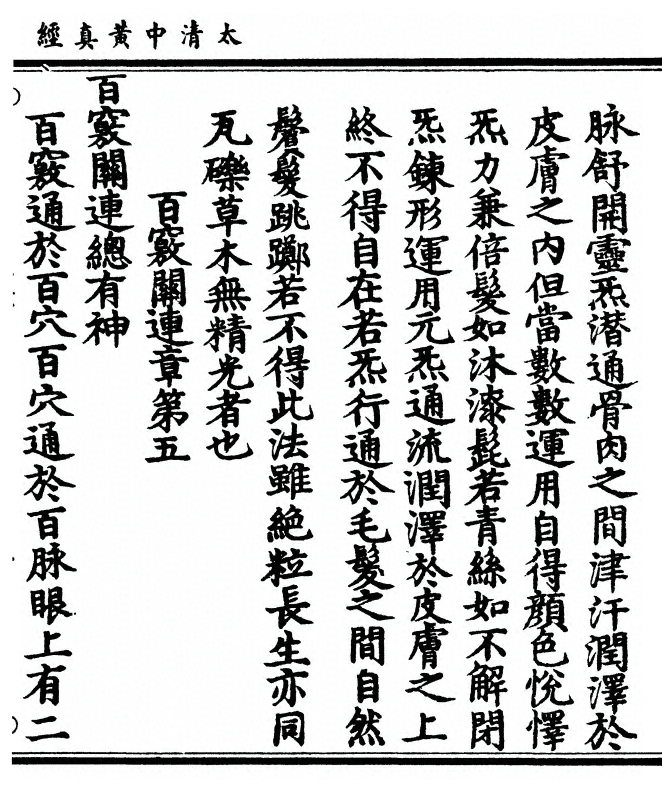 太清中黃真經
脉舒開靈炁潛通骨肉之間津汗潤澤於
皮膚之内但當數數運用自得顔色恱懌
炁力兼倍髮如沐漆髭若青絲如不解閉
炁鍊形運用元炁通流潤澤於皮膚之上
終不得自在若炁行通於毛髮之間自然
鬢髮跳躑若不得此法雖絶粒長生亦同
瓦礫草木無精光者也
百竅關連章第五
百竅關連總有神
百竅通於百穴百穴通於百脉眼上有二